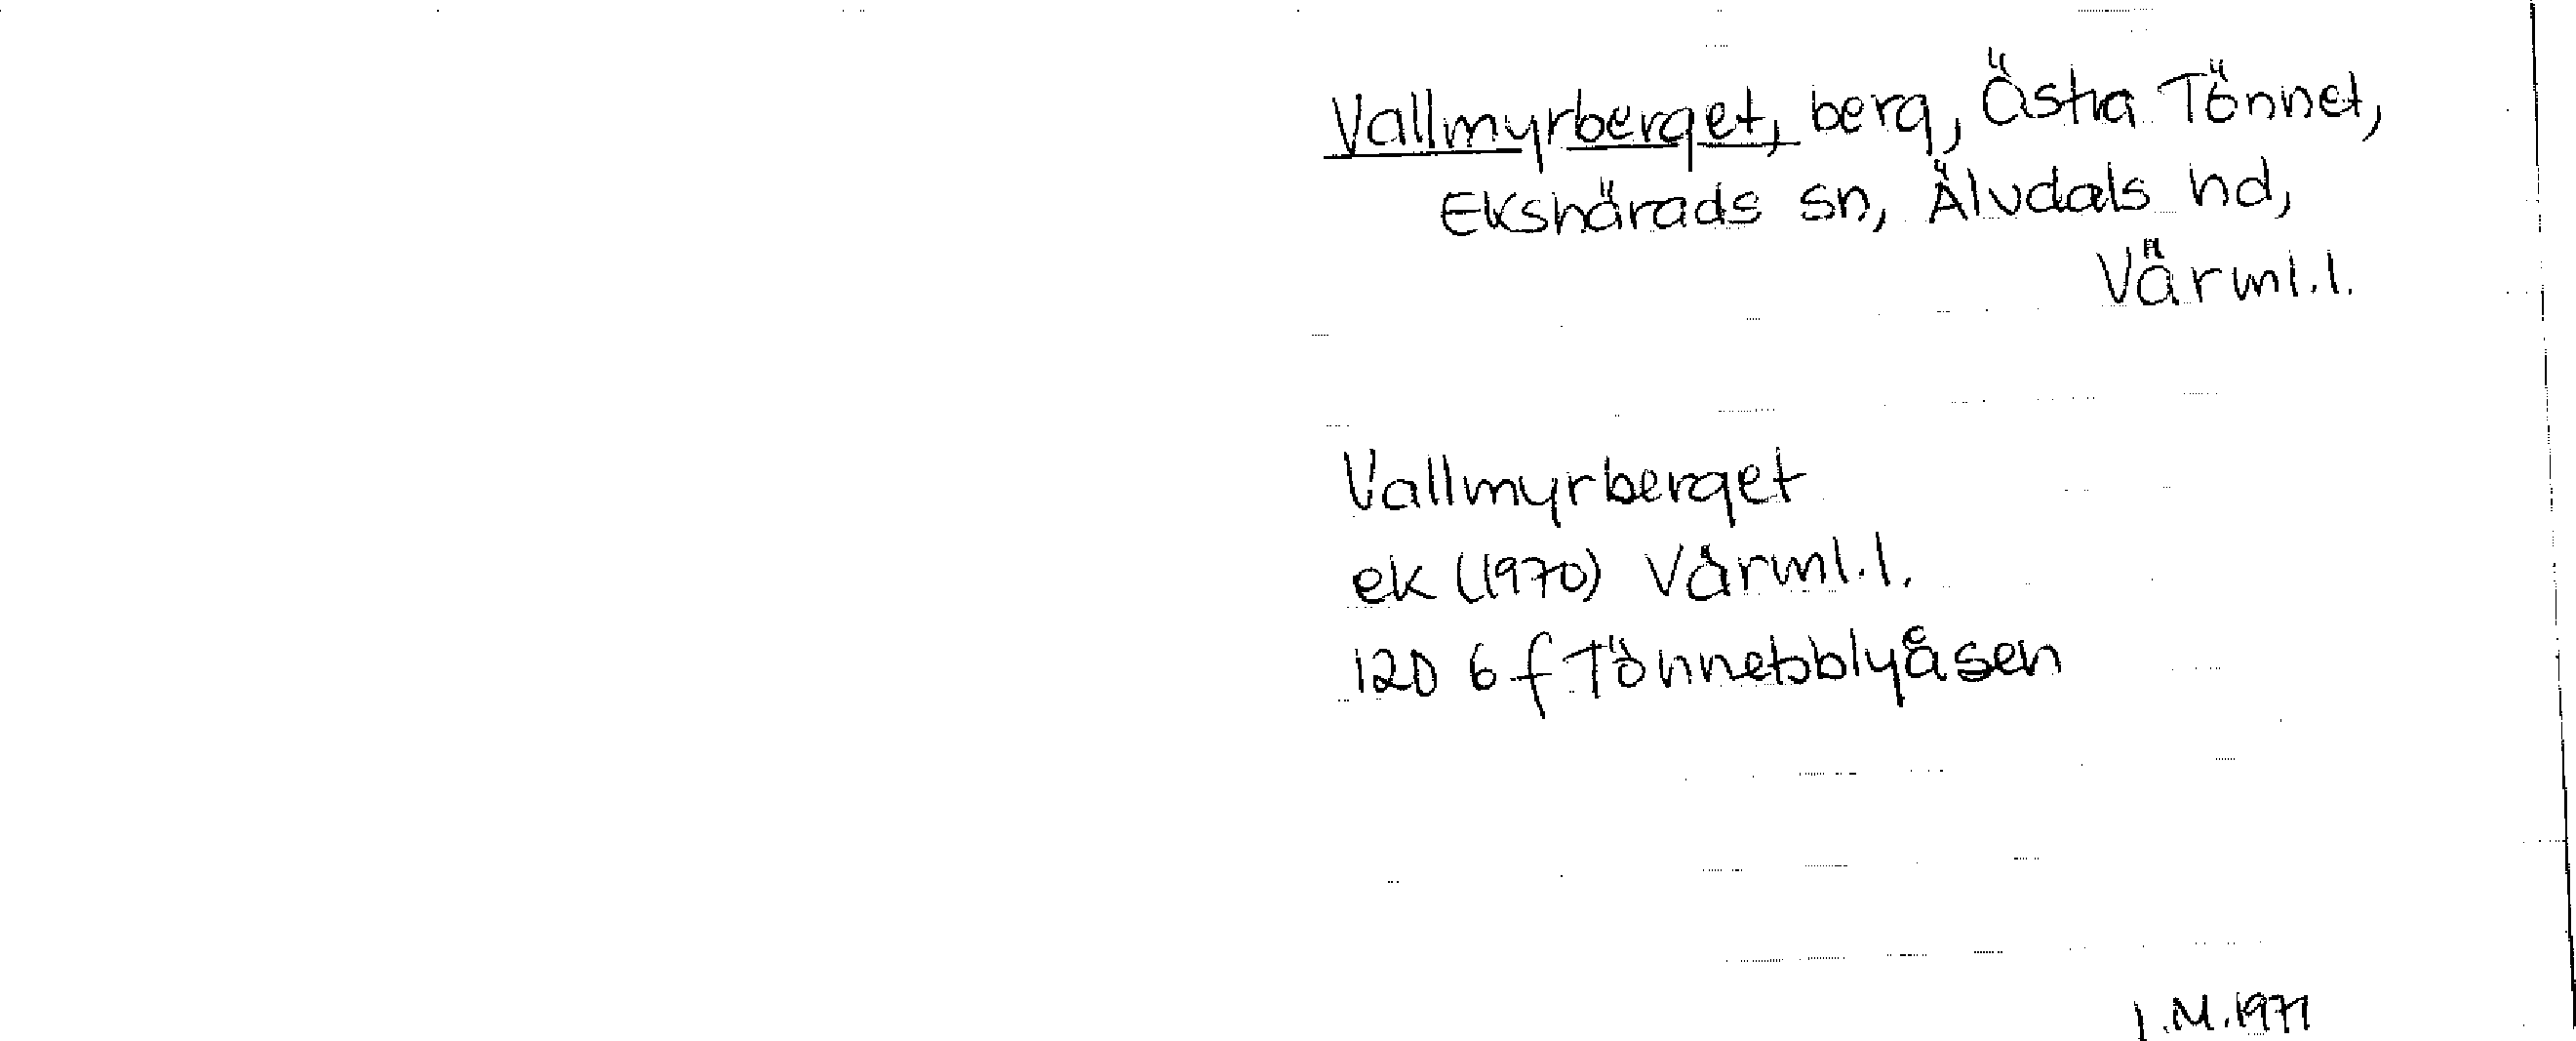 Vallmyrberget, berg, Östra Tönnet,
Ekshärads sn, Älvdals hd,
Värml.l.
Vallmyrberget
ek (1970) Värml.l.
12D 6 f Tönnetsblyåsen
I.M.1977